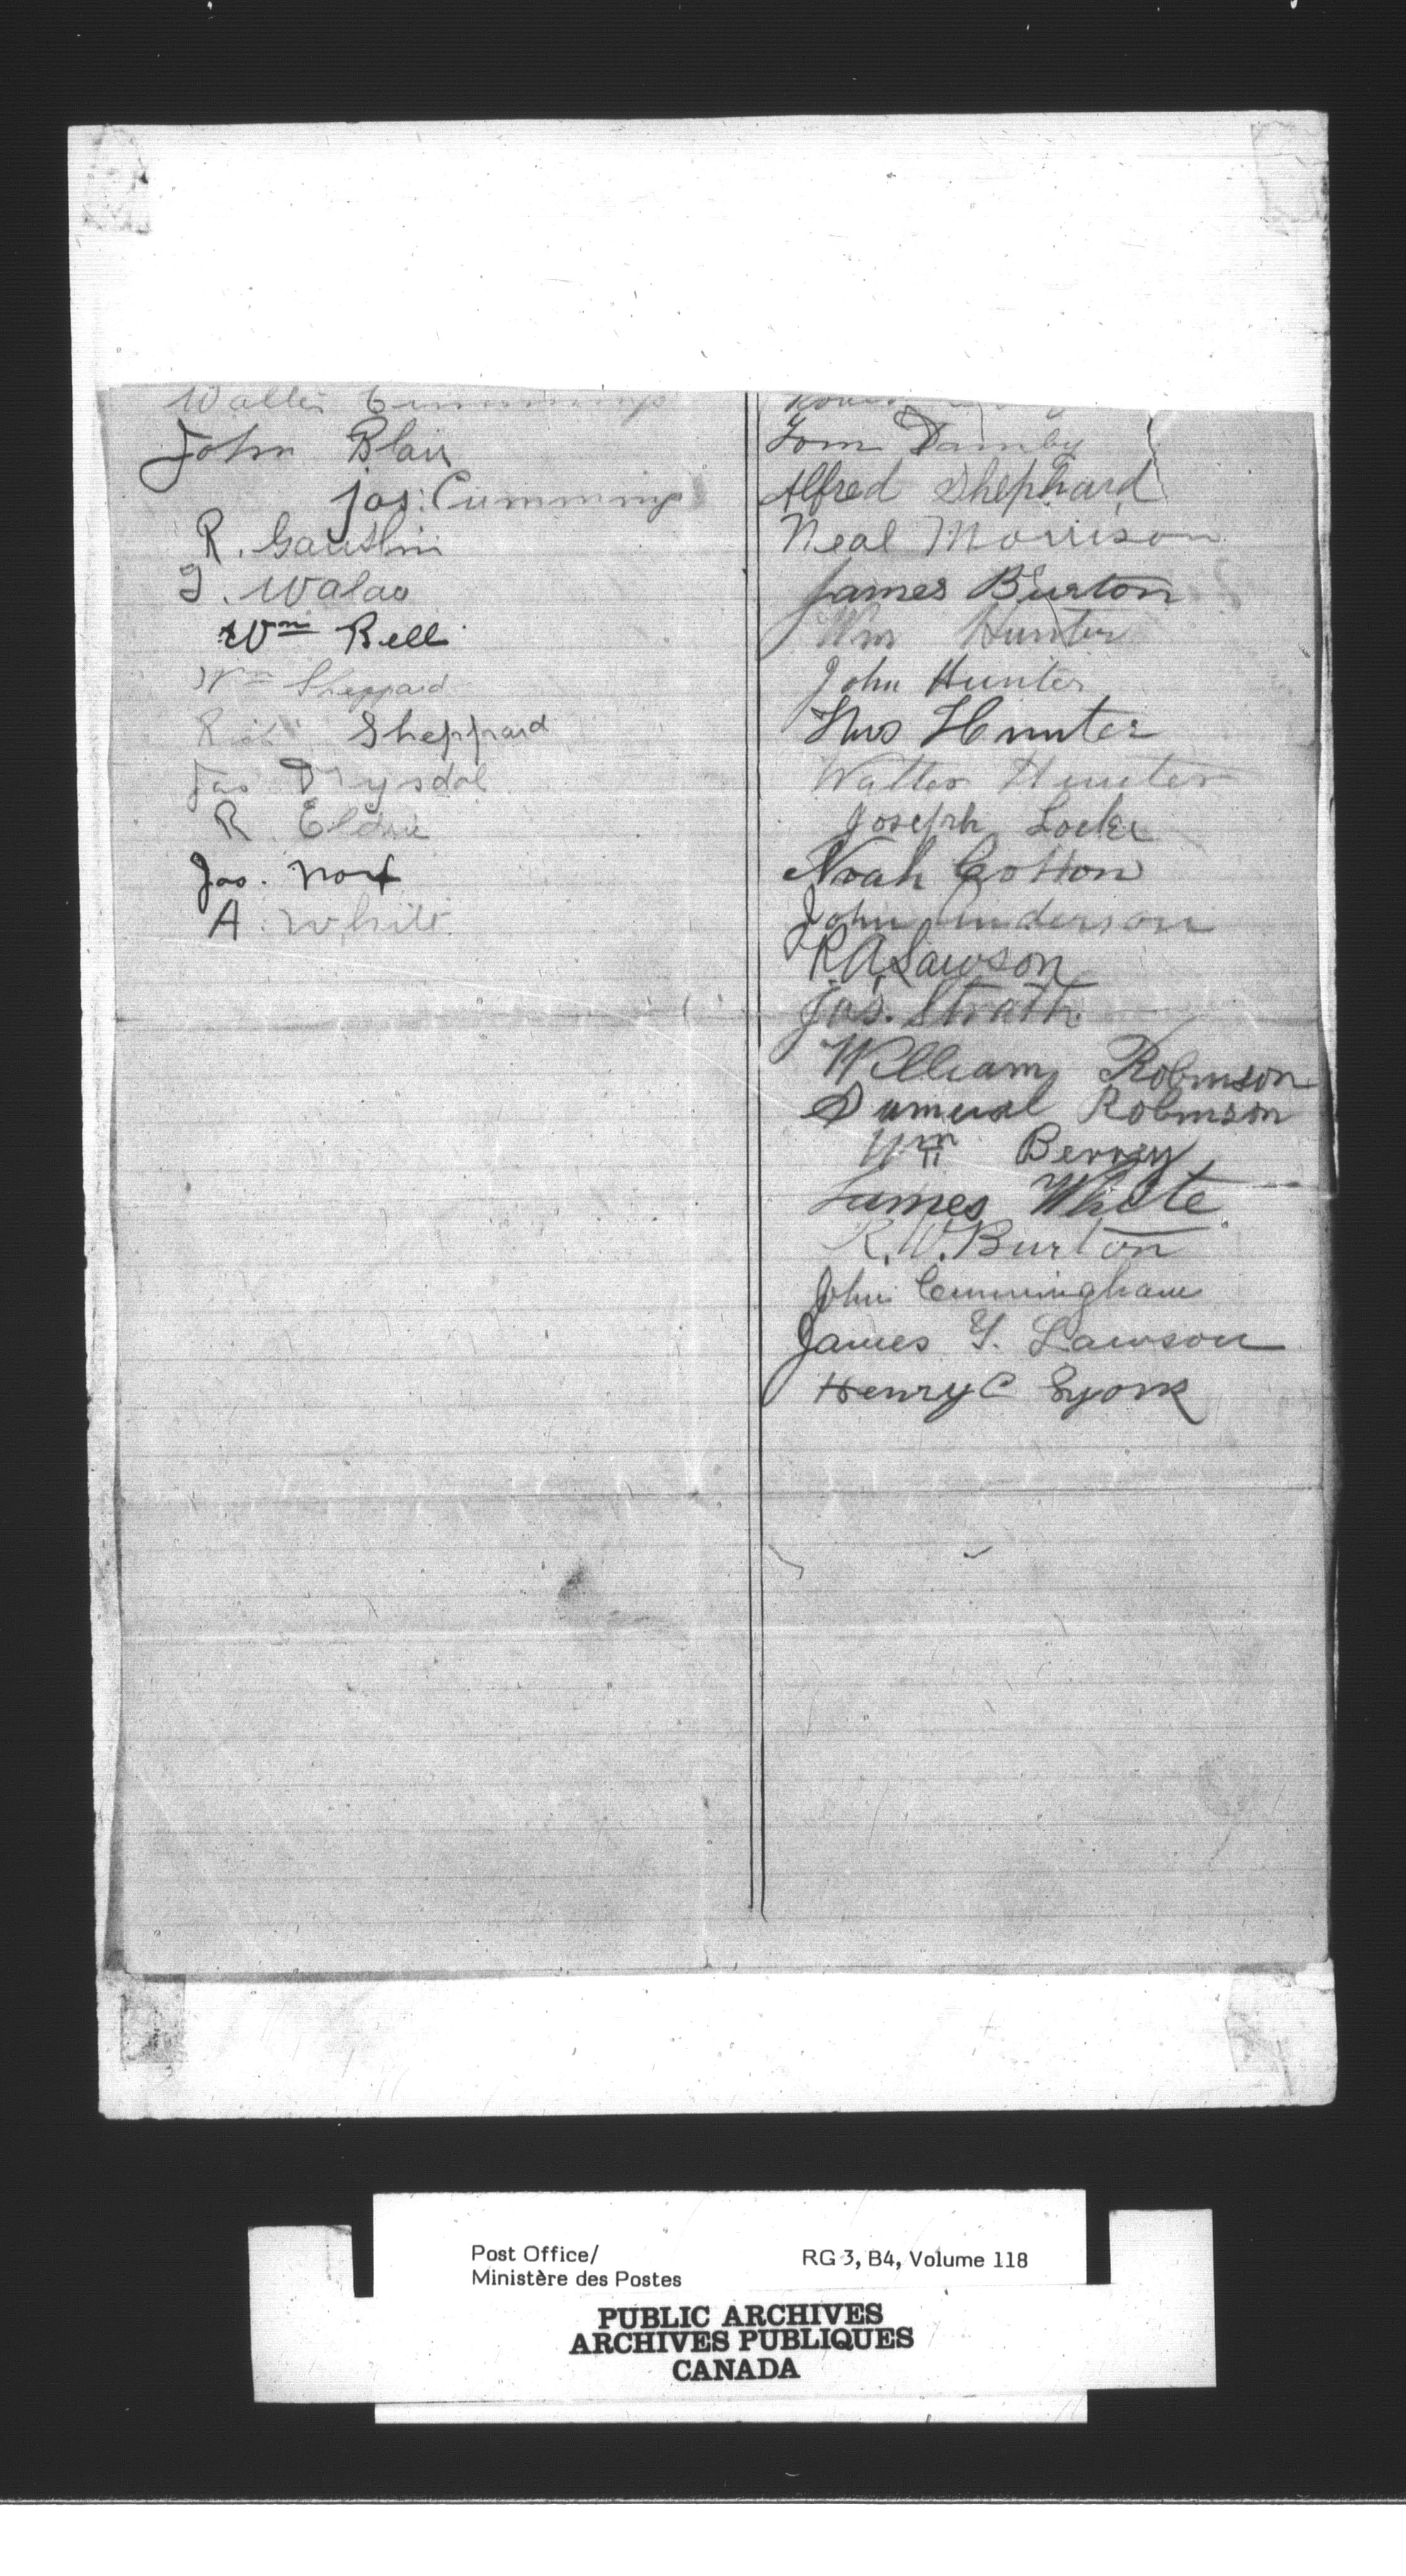 Walter Cummings
John Blair
Jas: Cummings
R. Gauslin
J. Walao
Wm Bell
Wm Sheppard
Sheppard
Jas Drysdal
R Eldrie
Jas. Nort
A. White
Tom Damby
Alfred Shephard
Neal Morrison
James Burton
Wm Hunter
John Hunter
Thos Hunter
Walter Hunter
Joseph Locke
Noah Cotton
John Anderson
R. A. Lawson
Jas. Strath
William Robinson
Samual Robinson
Wm Berrey
James White
R. W. Burton
John Cunningham
James Y. Lawson
Henry C Lyons
Post Office/
Ministère des Postes
RG 3, B4, Volume 118
PUBLIC ARCHIVES
ARCHIVES PUBLIQUES
CANADA